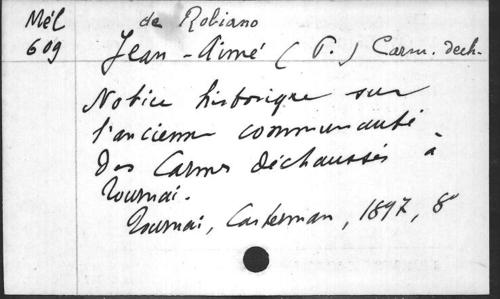 Mél de Robiano
609 Jean-Aimé (P.) Carm. dech.
Notice historique sur
l'ancienne communauté
des Carmes déchaussés à
Tournai.
Tournai, Casterman, 1897, 8°